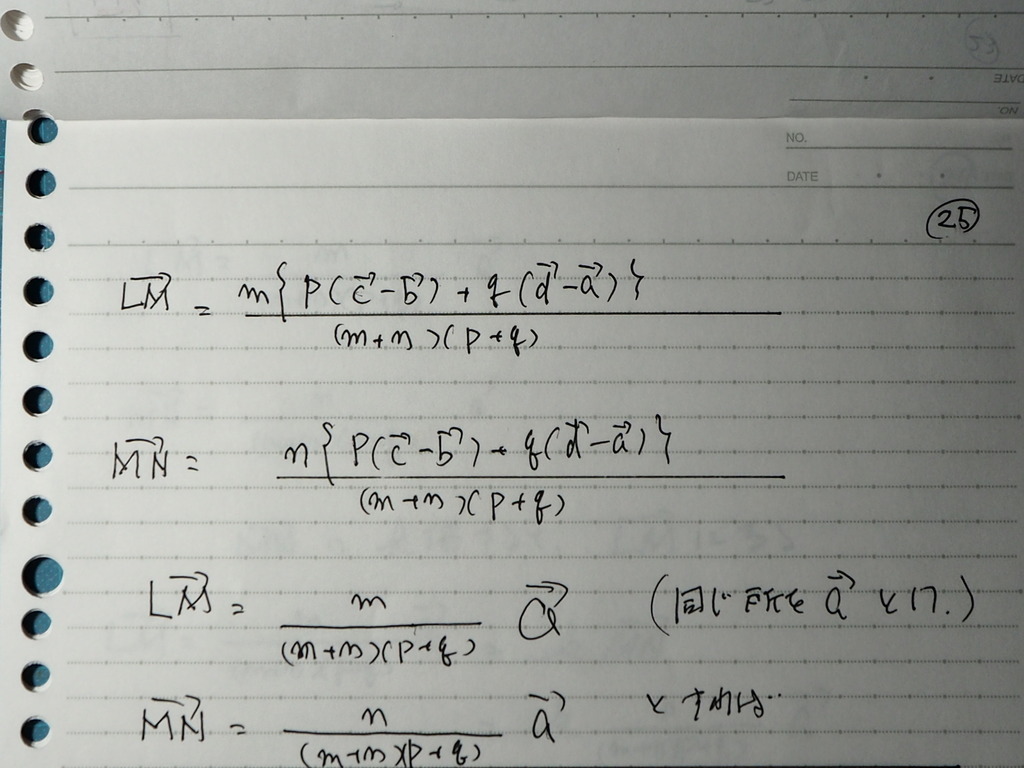 NO.
DATE
㉕
$\overrightarrow{LM} = \frac{m\{p(\vec{c}-\vec{b})+q(\vec{d}-\vec{a})\}}{(m+n)(p+q)}$
$\overrightarrow{MN} = \frac{n\{p(\vec{c}-\vec{b})+q(\vec{d}-\vec{a})\}}{(m+n)(p+q)}$
$\overrightarrow{LM} = \frac{m}{(m+n)(p+q)} \vec{a}$ (同じ所を $\vec{a}$ と
$\overrightarrow{MN} = \frac{n}{(m+n)(p+q)} \vec{a}$ とすれば‥